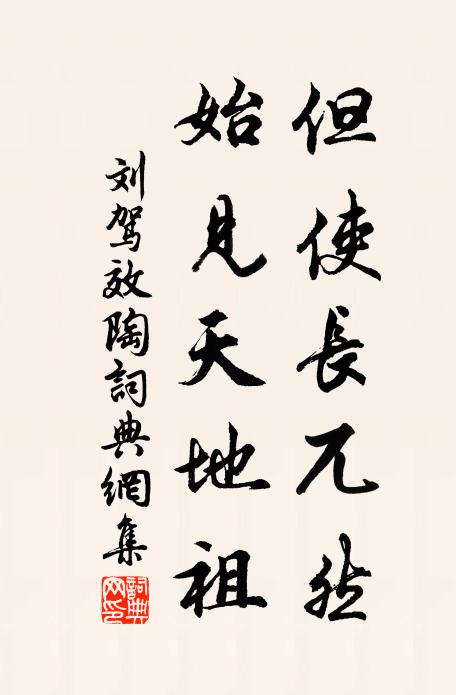 但使長兀然
始見天地祖
刘驾效陶詞典網集
詞典网印